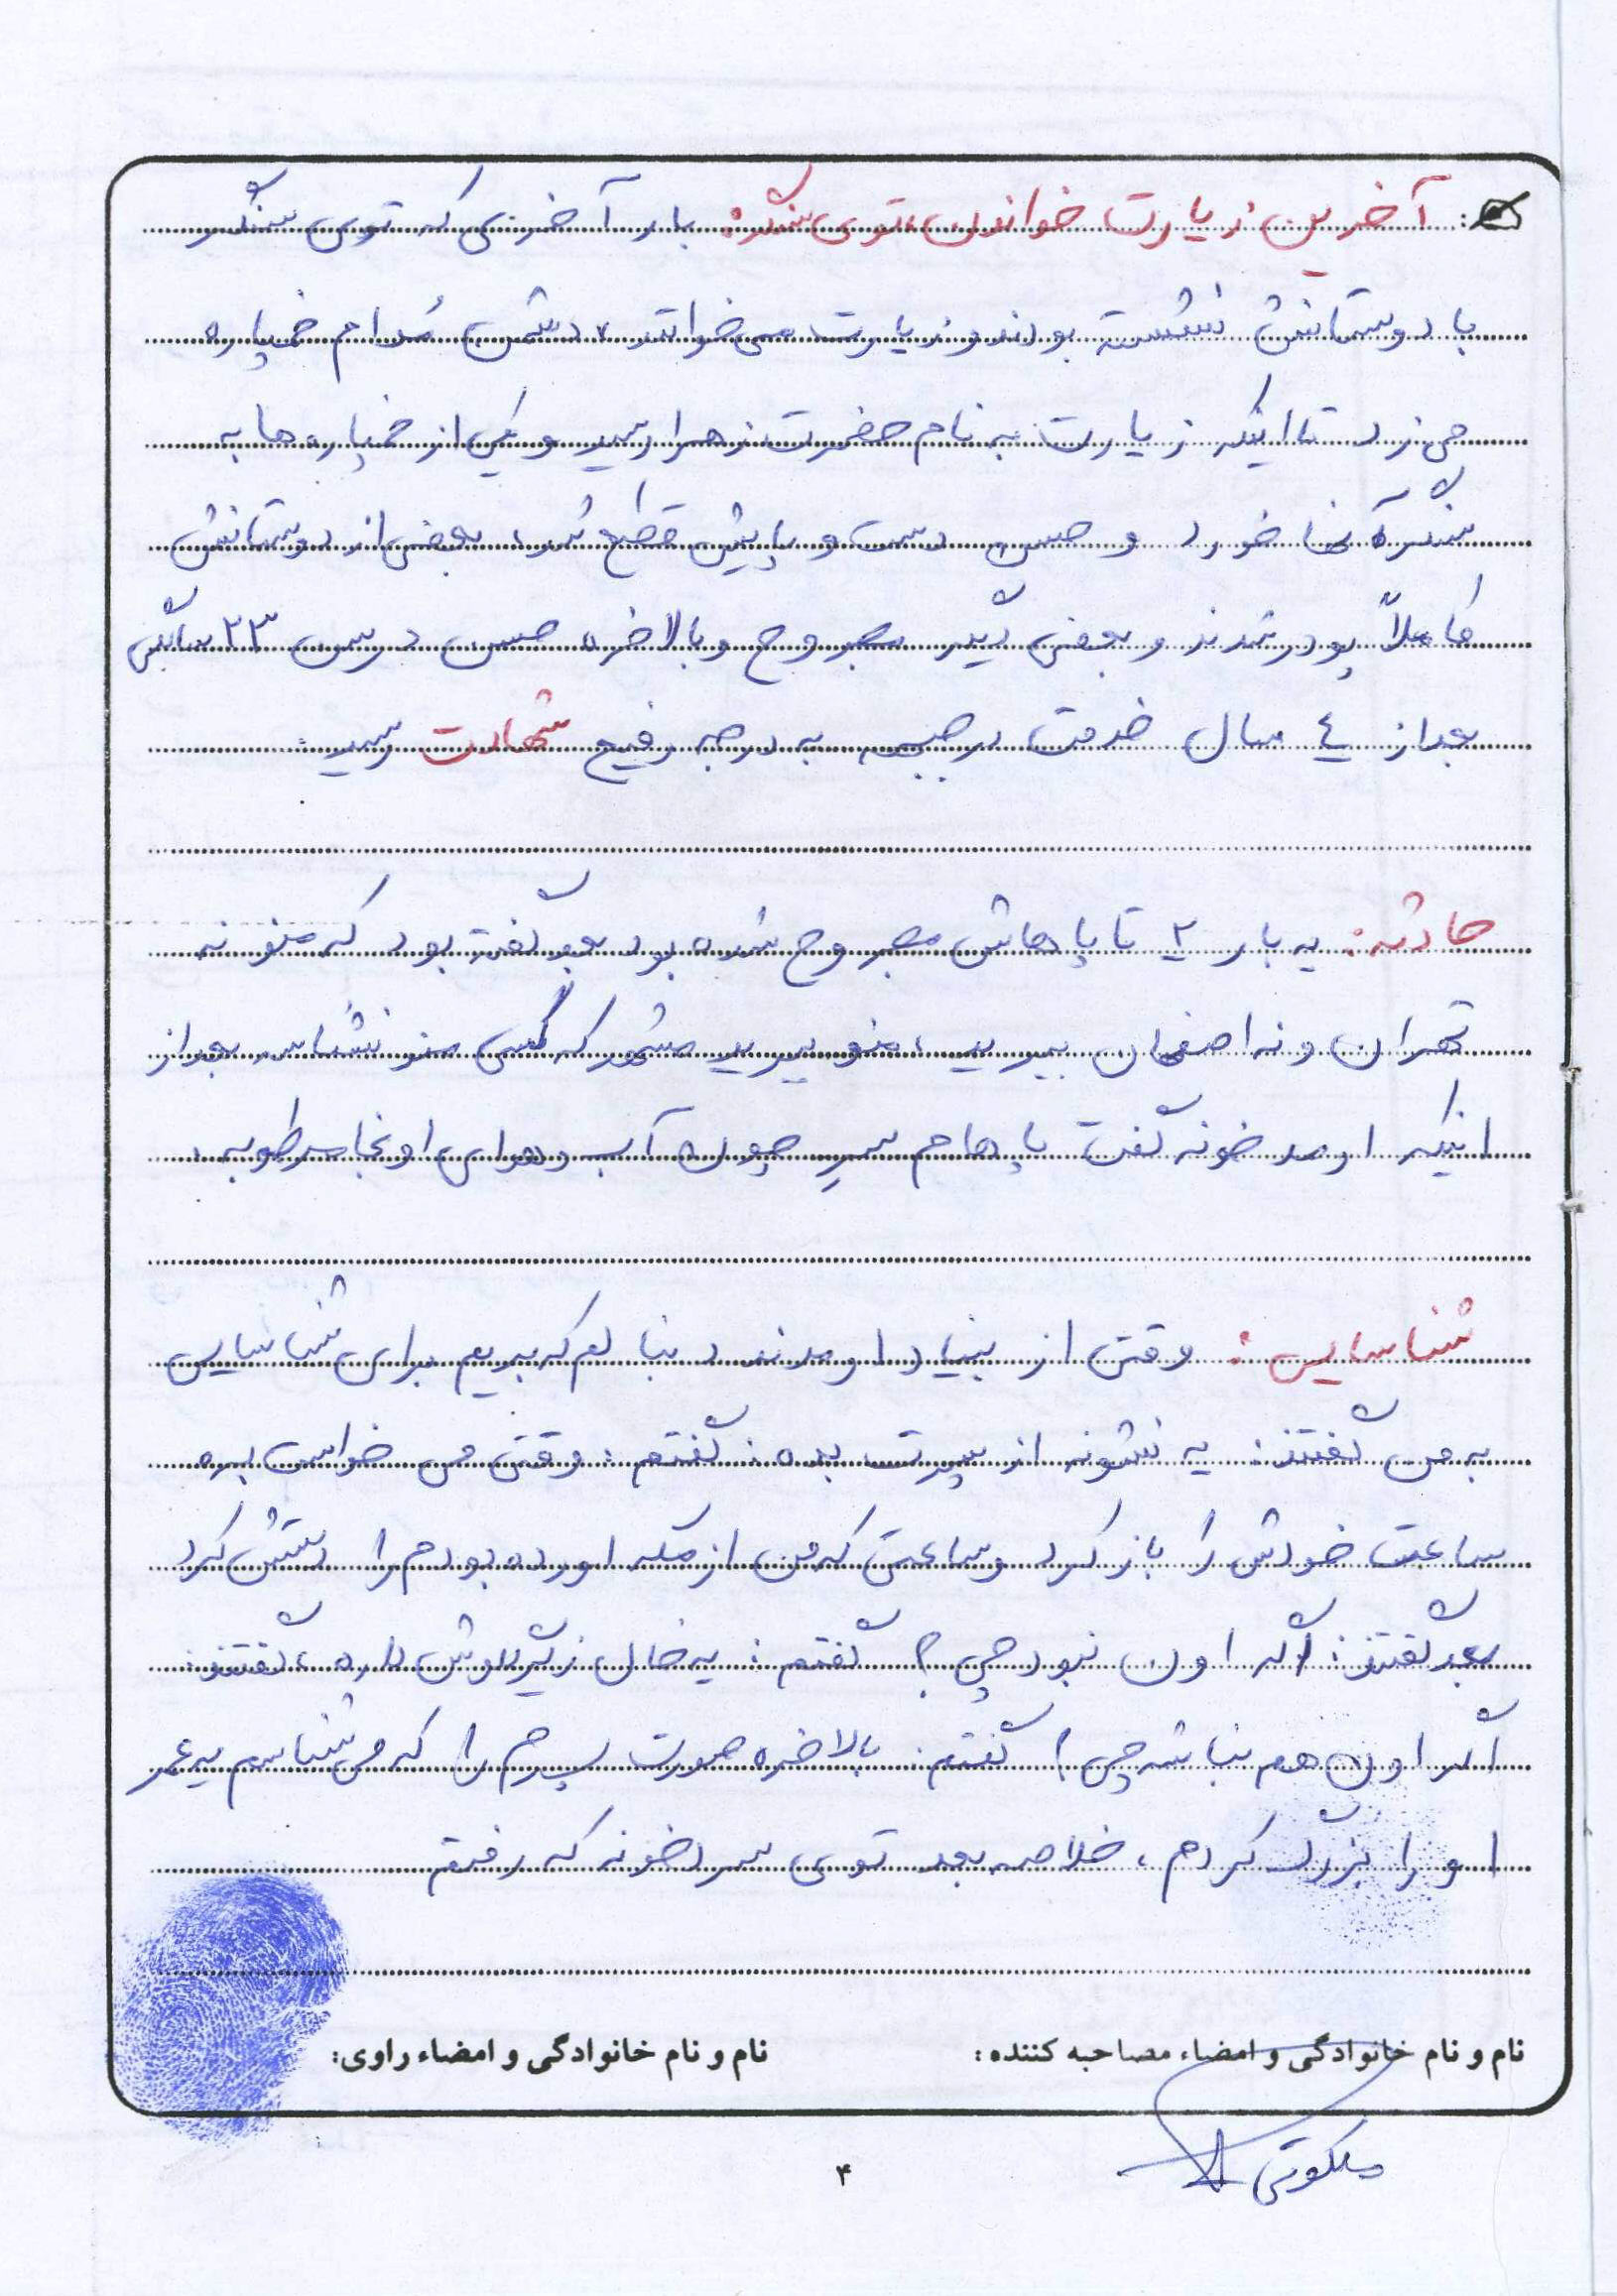 آخرین زیارت خواندن، توی سنگر: بار آخری که توی سنگر
با دوستانش نشسته بودند و زیارت می خواندند، دشمن مُدام خمپاره
می زد تا اینکه زیارت به نام حضرت زهرا رسید و یکی از خمپاره ها به
سنگر آنها خورد و حسن دست و پایش قطع شد، بعضی از دوستانش
کاملاً پودر شدند و بعضی دیگر مجروح و بالاخره حسن در سن ۲۳ سالگی
بعد از ٤ سال خدمت در جبهه به درجه رفیع شهادت رسید.
حادثه: یه بار ۲ تا پاهاش مجروح شده بود بعد گفته بود که منو نه
تهران و نه اصفهان ببرید، منو ببرید مشهد که کسی منو نشناسه بعد از
اینکه اومد خونه گفت پاهام سِرِ چون آب و هوای اونجا مرطوبه.
شناسایی: وقتی از بنیاد اومدند دنبالم که بریم برای شناسایی
به من گفتند: یه نشونه از پسرت بده: گفتم: وقتی می خواست بره
ساعت خودش را باز کرد و ساعتی که من از مکه اورده بودم را دستش کرد
بعد گفتند: اگه اون نبود چی؟ گفتم: یه خال زیر گلوش داره، گفتند:
اگر اون هم نباشه چی؟ گفتم: بالاخره صورت پسرم را که می شناسم یه عمر
او را بزرگ کردم، خلاصه بعد توی سردخونه که رفتم
نام و نام خانوادگی و امضاء مصاحبه کننده:
نام و نام خانوادگی و امضاء راوی:
ملکوتی
۴